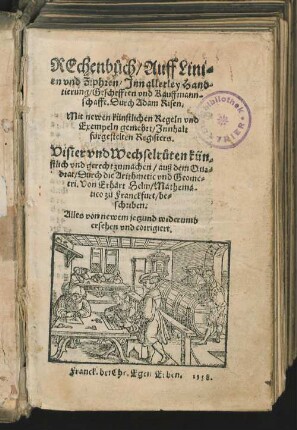 REchenbůch/ Auff Lini-
en vnd Ziphren/ Inn allerley Hand-
tierung/ Geschefften vnd Kauffmann-
schafft. Durch Adam Risen,
Mit newen künstlichen Regeln vnd
Exempeln gemehrt/ Innhalt
fürgestelten Registern.
Visier vnd Wechselrůten kün-
stlich vnd gerecht zumachen/ auß dem Qua-
drat/ Durch die Arithmetic vnd Geome-
tri. Von Erhart Helm/ Mathema-
tico zů Franckfurt/ be-
schriben.
Alles von newem jetzund widerumb
ersehen vnd corrigiert.
Franck. bei Chr. Egen. Erben.
Bibliothek
TRIER